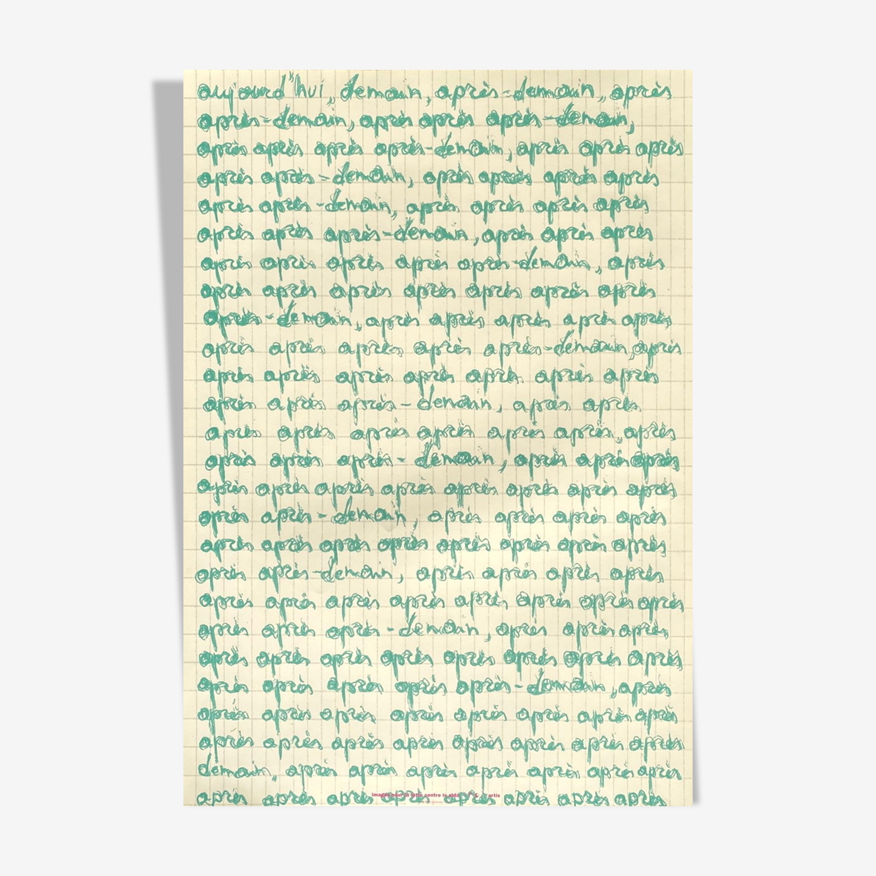 aujourd'hui, demain, après-demain, après
après-demain, après après après-demain,
après après après après-demain, après après après
après après-demain, après après après après
après après-demain, après après après après
après après après-demain, après après après
après après après après après-demain, après
après après après après après après après
après-demain, après après après après après
après après après après après-demain, après
après après après après après après après
après après après-demain, après après
après après après après après après après
après après après-demain, après après après
après après après après après après après après
après après-demain, après après après après
après après après après après après après après
après après-demain, après après après après
après après après après après après après après
après après après-demain, après après après
après après après après après après après après
après après après après après-demain, après
après après après après après après après après
après après après après après après après après
demain, après après après après après après après
après après après après après après après après